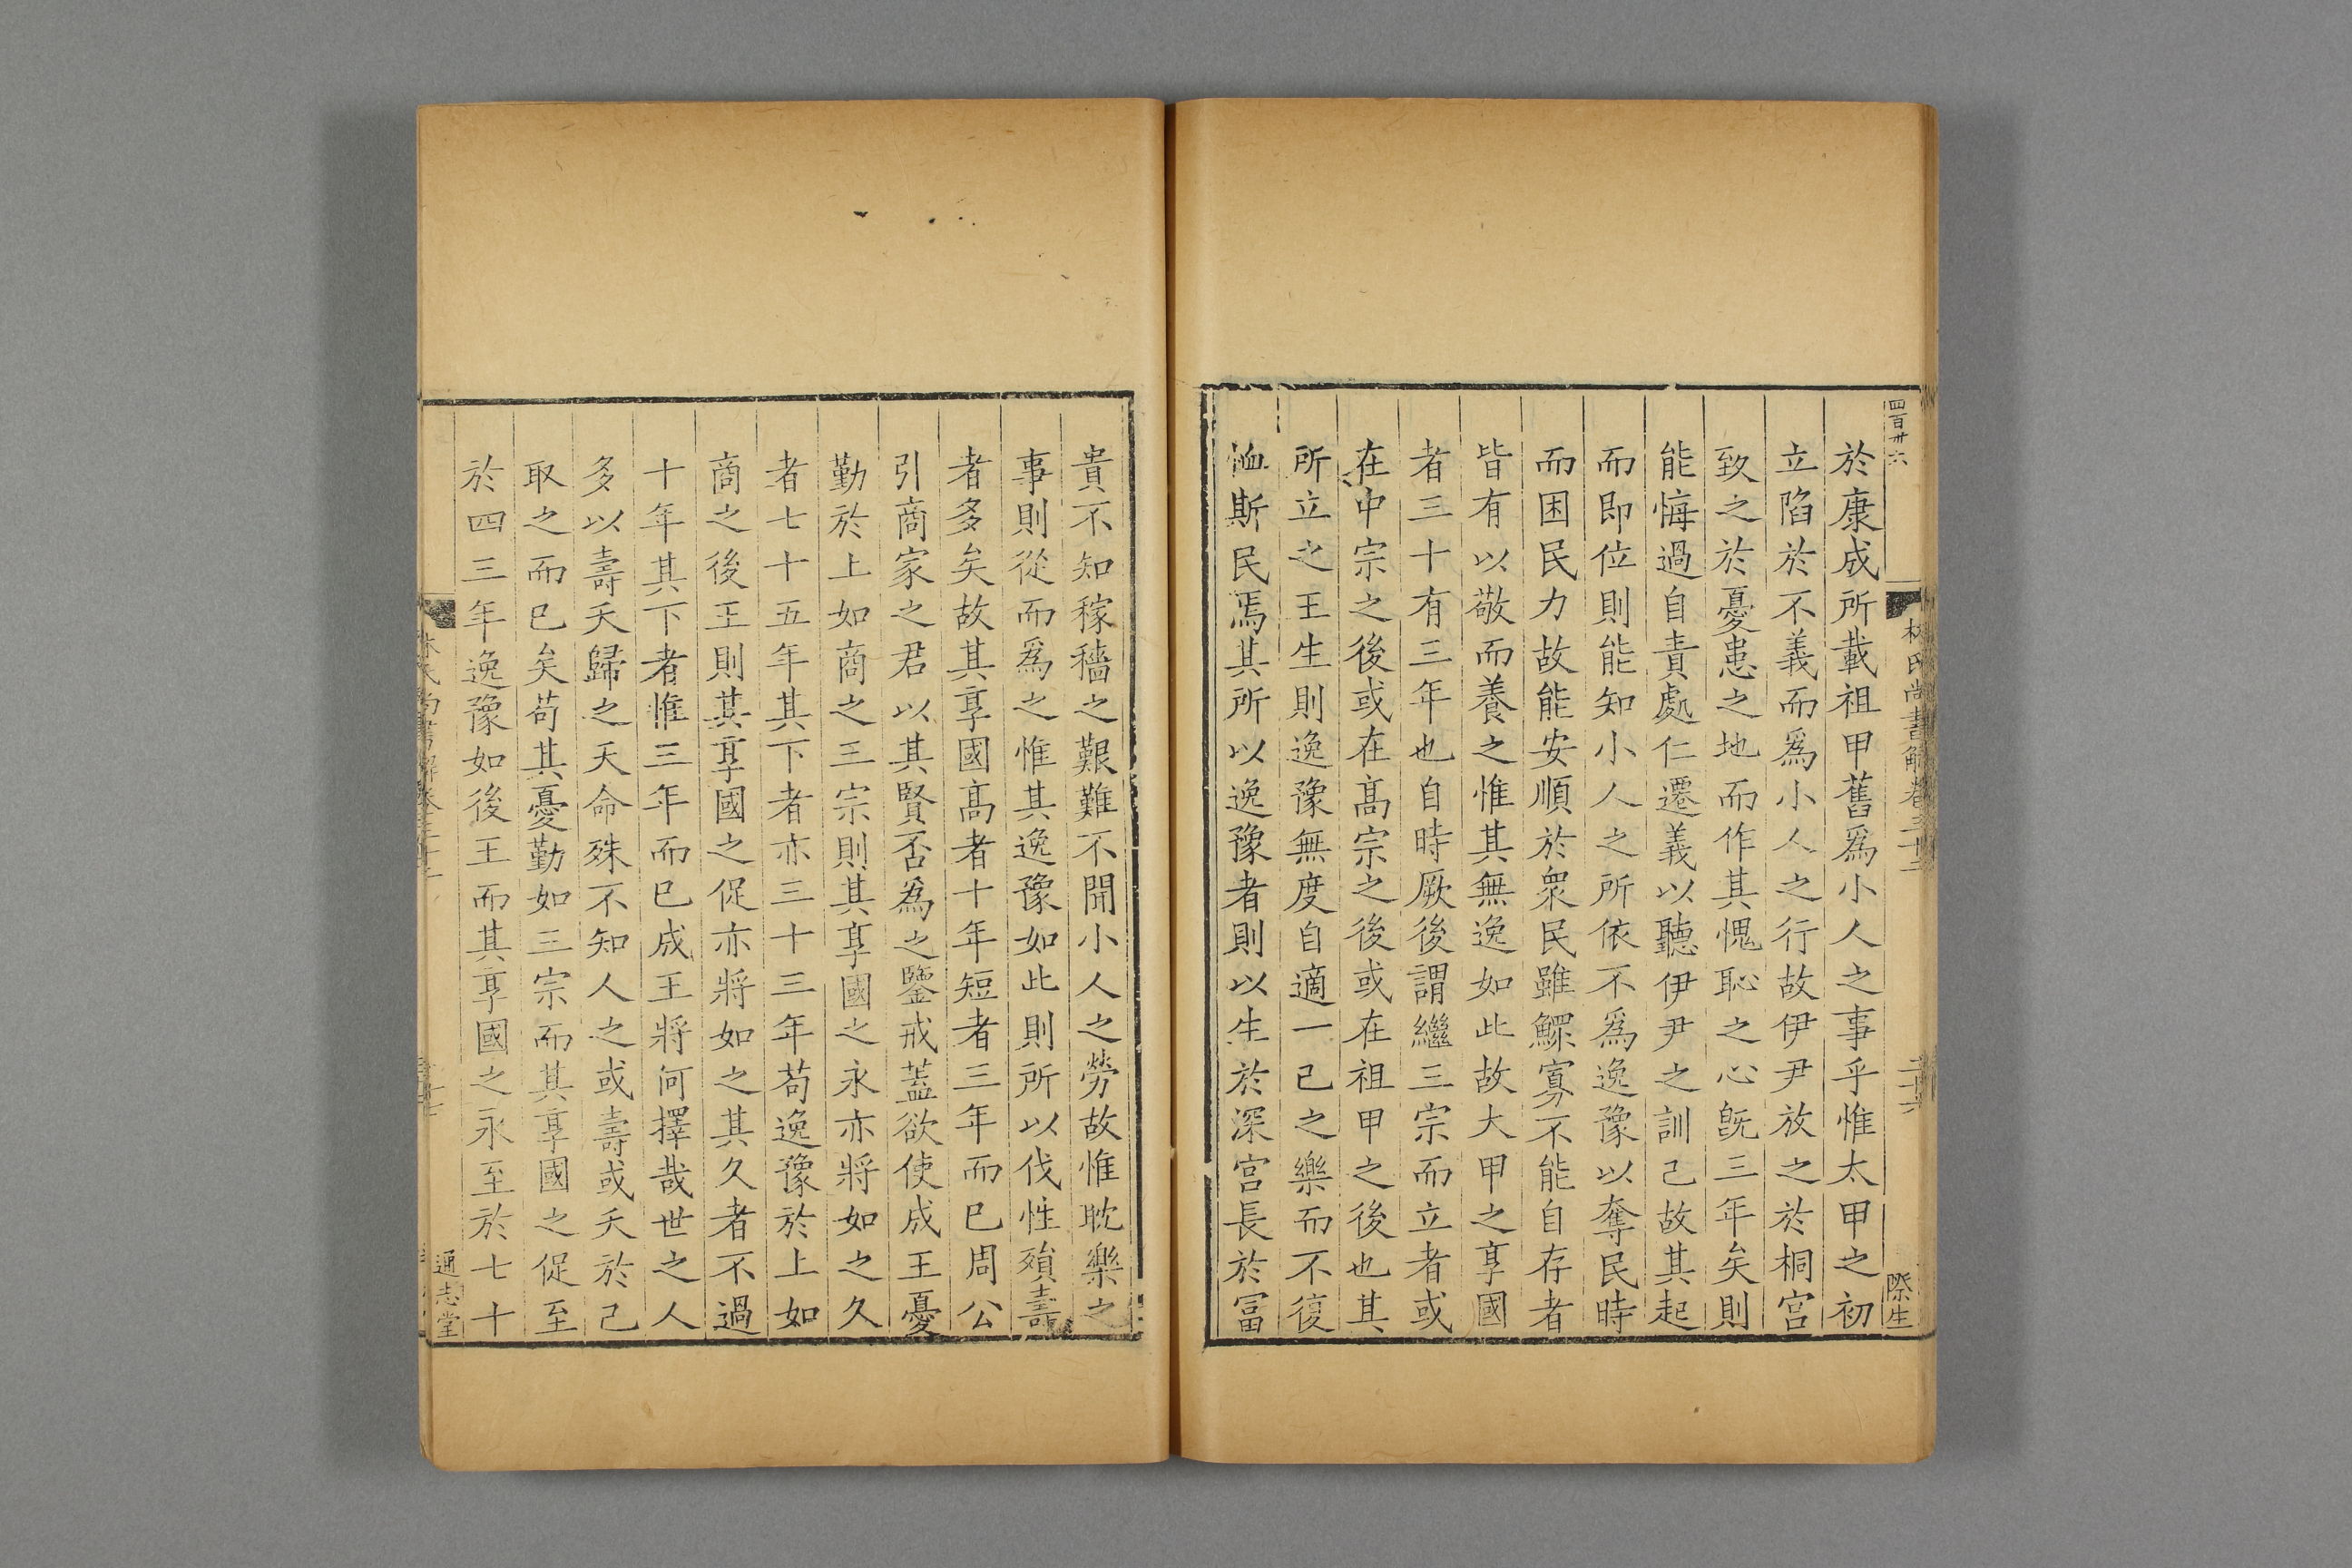 四百卅六
於康成所載祖甲舊爲小人之事乎惟太甲之初
立陷於不義而爲小人之行故伊尹放之於桐宫
致之於憂患之地而作其愧恥之心旣三年矣則
能悔過自責處仁遷義以聽伊尹之訓己故其起
而即位則能知小人之所依不爲逸豫以奪民時
而困民力故能安順於衆民雖鰥寡不能自存者
皆有以敬而養之惟其無逸如此故大甲之享國
者三十有三年也自時厥後謂繼三宗而立者或
在中宗之後或在髙宗之後或在祖甲之後也其
所立之王生則逸豫無度自適一已之樂而不復
恤斯民焉其所以逸豫者則以生於深宫長於冨
林氏尚書解卷三十二
際生
貴不知稼穡之艱難不聞小人之勞故惟耽樂之
事則從而爲之惟其逸豫如此則所以伐性殞壽
者多矣故其享國髙者十年短者三年而巳周公
引商家之君以其賢否爲之鑒戒蓋欲使成王憂
勤於上如商之三宗則其享國之永亦將如之久
者七十五年其下者亦三十三年苟逸豫於上如
商之後王則其享國之促亦將如之其久者不過
十年其下者惟三年而巳成王將何擇哉世之人
多以壽夭歸之天命殊不知人之或壽或夭於己
取之而巳矣苟其憂勤如三宗而其享國之促至
於四三年逸豫如後王而其享國之永至於七十
通志堂